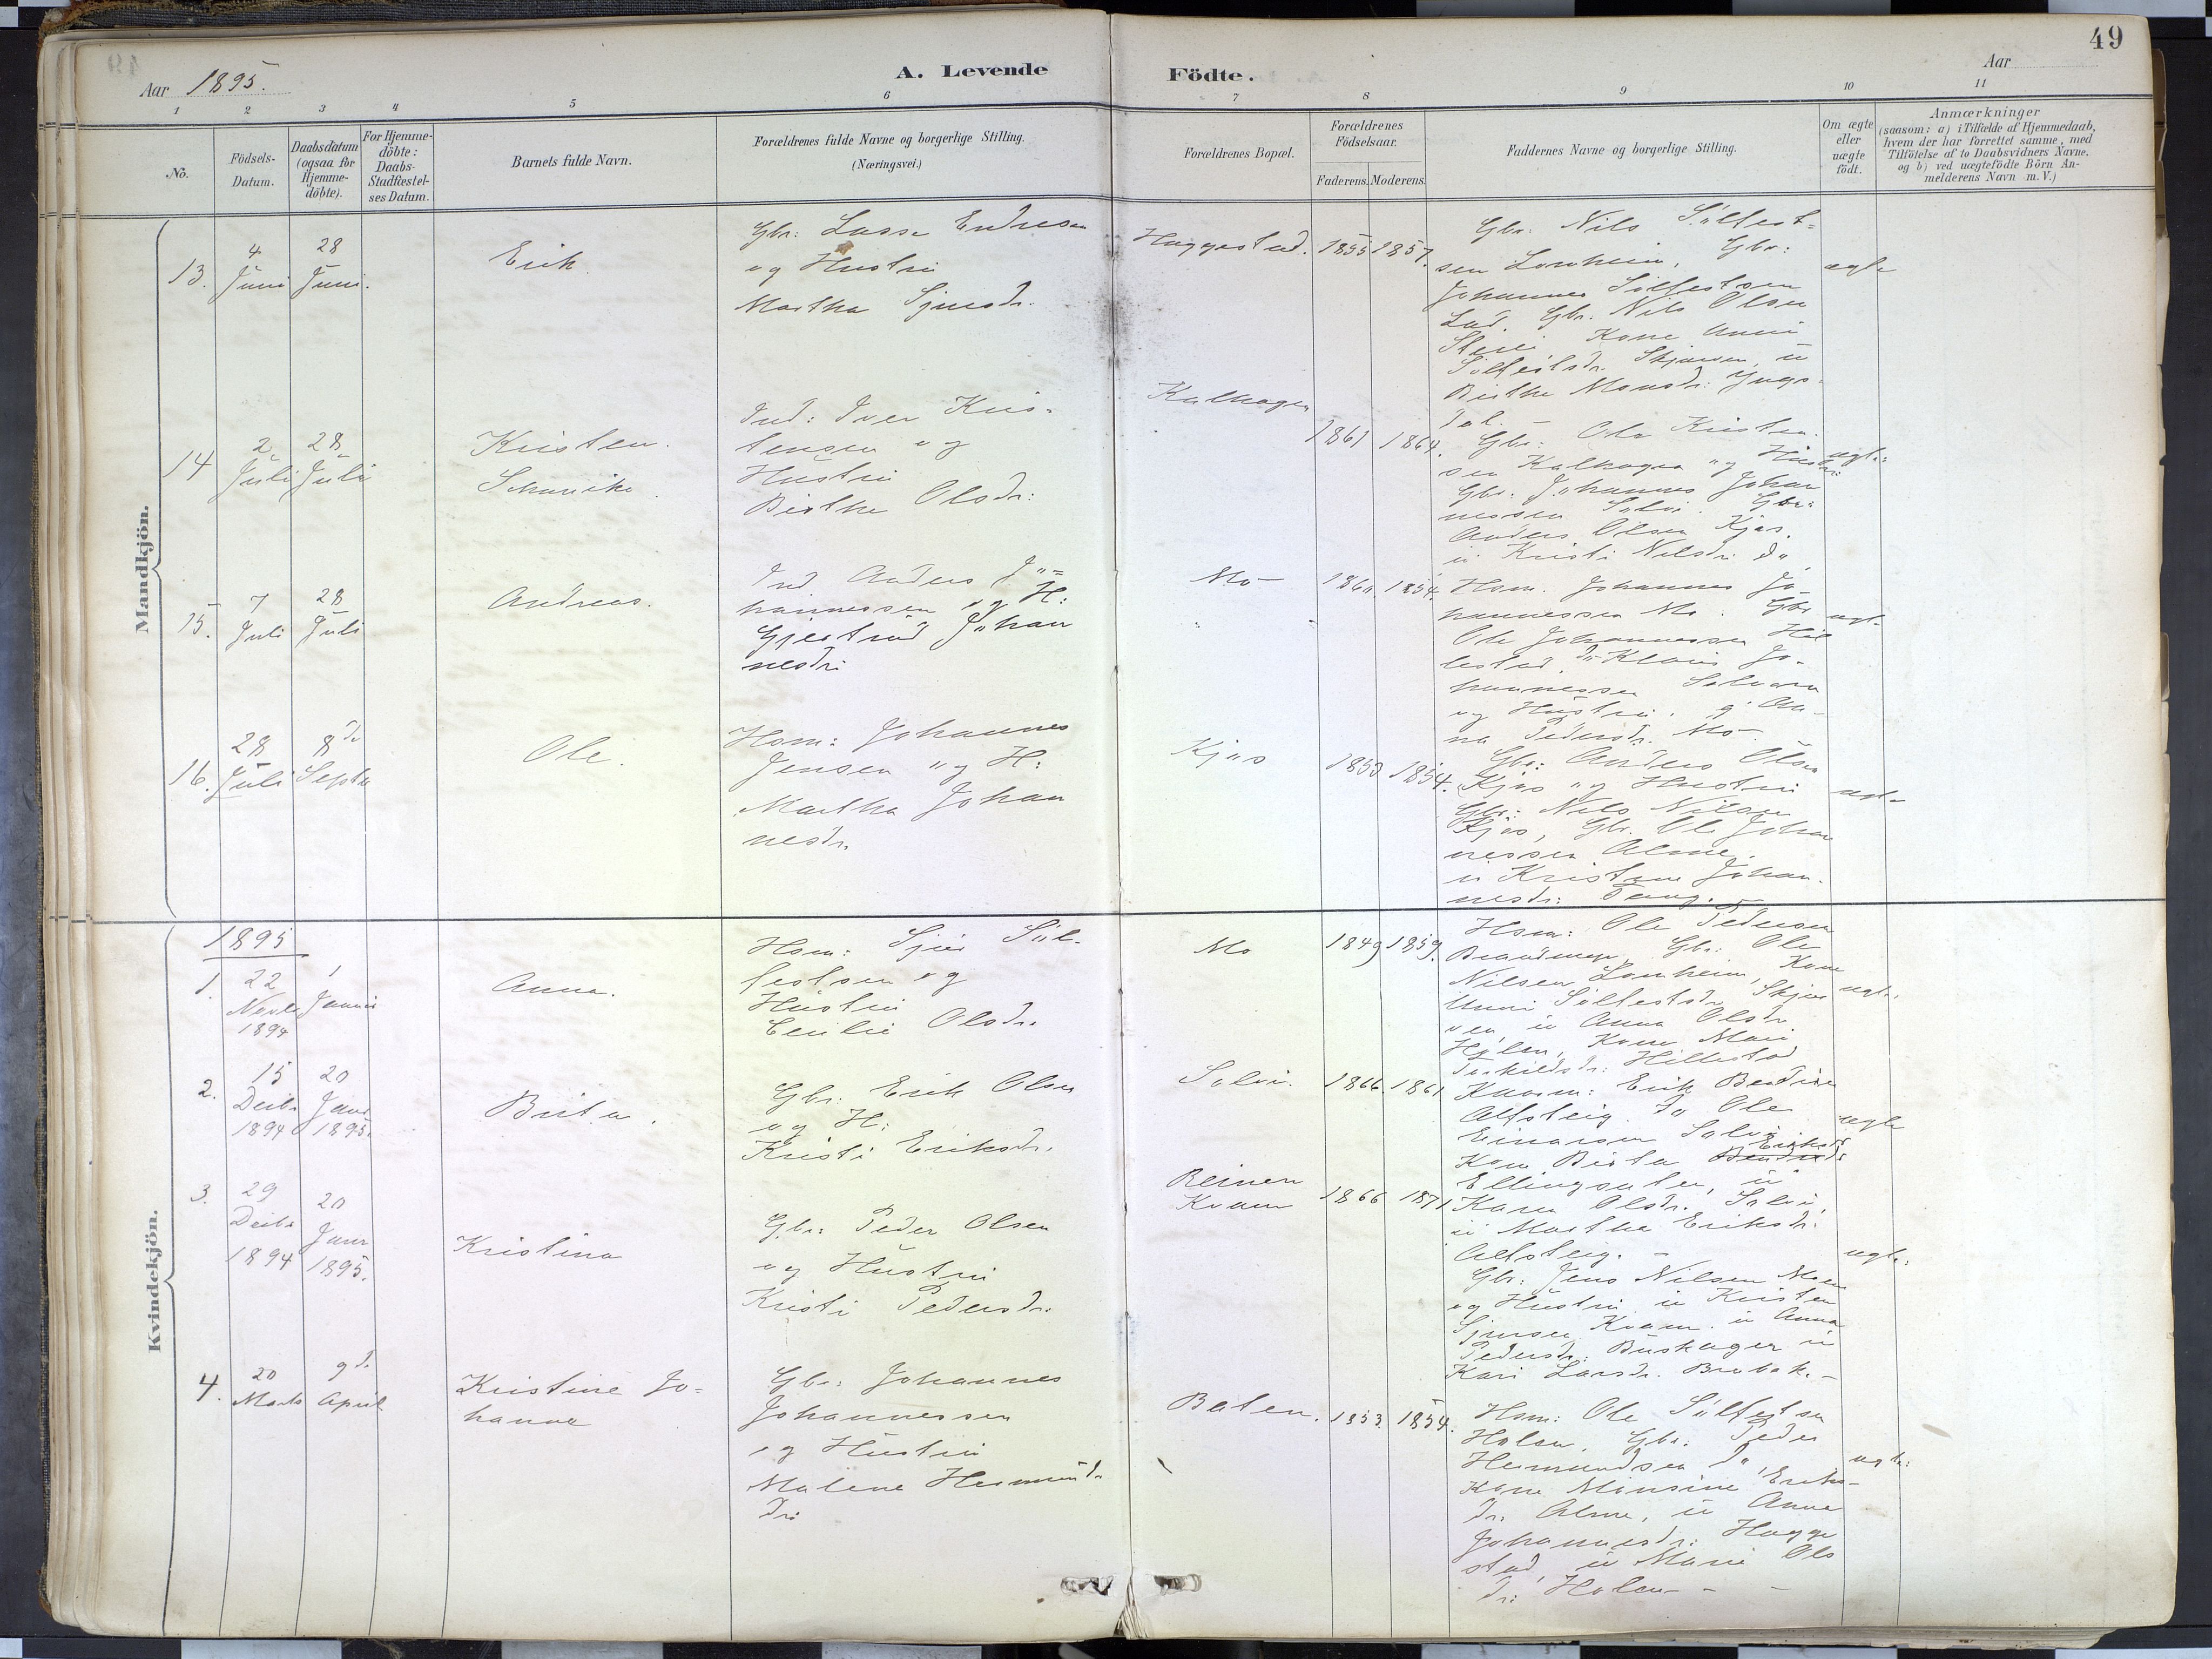 49
Aar 1895.
A. Levende Födte.
Aar
1 2 3 4 5 6 7 8 9 10 11
No.
Födsels-
Datum.
Daabsdatum
(ogsaa for
Hjemme-
döbte).
For Hjemme-
döbte:
Daabs-
Stadfæstel-
ses Datum.
Barnets fulde Navn.
Forældrenes fulde Navne og borgerlige Stilling.
(Næringsvei.)
Forældrenes Bopæl.
Forældrenes
Födselsaar.
Faderens. Moderens.
Faddernes Navne og borgerlige Stilling.
Om ægte
eller
uægte
födt.
Anmærkninger
(saasom: a) i Tilfælde af Hjemmedaab,
hvem der har forrettet samme, med
Tilföielse af to Daabsvidners Navne.
og b) ved uægtefödte Börn An-
melderens Navn m. V.)
Mandkjön.
13.
4
Juni
28
Juni.
Erik
Gbr: Lasse Endresen
og Hustru
Martha Sjursdr.
Haggestad.
1855 1857.
Gbr: Nils Sölfest-
sen Lonheim, Gbr:
Johannes Sölfestsen
Lad. Gbr. Nils Olsen
Kone Anni
Sölfestsdr. Skjerven, u
Birthe Monsdr: Yngs-
dal. -
ægte
14
2
Juli
28
Juli
Kristen
Schanike
Ind: Iver Kris-
tensen og
Hustru
Birthe Olsdr:
Kalhagen
1861 1864.
Gbr: Ole Kristen
sen Kalhagen og Hustru
Gbr. Johannes Johan
nessen Solvi. Gbr:
Anders Olsen Kjøs.
u Kristi Nilsdr: do
ægte:
15.
7
Juli
28
Juli
Andreas.
Ind Anders Jo=
hannessen og H:
Gjertrud Johan
nesdr:
Mo
1860. 1854.
Hsm. Johannes Jo-
hannessen Mo. Gbr
Ole Johannessen Hil
lestad. do Klaus Jo-
hannessen
og Hustru. g. An-
na Pedersdr. Mo.
ægte
16.
28
Juli
8de
Septbr
Ole.
Hsm: Johannes
Jensen og H:
Martha Johan
nesdr.
Kjøs
1853 1854.
Gbr: Anders Olsen
Kjøs og Hustru
Gbr: Nils Nilsen
Kjøs, Gbr. Ole Johan
nessen Alme.
u Kristine Johan-
nesdr:
ægte
Kvindekjön.
1895
1.
22
Novbr
1894
1
Januar
Anna.
Hsm: Sjur Söl-
festsen og
Hustru
Cecilie Olsdr.
Mo
1849 1859.
Hsm: Ole Pedersen
Gbr: Ole
Nilsen Lonheim, Kone
Unni Sölfestsdr Skjer
ven, u Anna Olsdr.
Holen, Kone Mari
Torkildsdr: Hillestad
ægte.
2.
15
Decbr
1894
20
Janr
1895.
Brita.
Gbr: Erik Olsen
og H:
Kristi Eriksdr.
Solvi.
1866. 1861
Erik Bendixen
Afsteig. do Ole
Einarsen Solvi
Kone Birta Bendixdr Eriksdr
Ellingsæter, u
Karen Olsdr. Solvi,
u Martha Eriksdr.
Afsteig. -
ægte
3.
29
Decbr
1894
20
Janr
1895.
Kristina
Gbr: Peder Olsen
og Hustru
Kristi Pedersdr:
Reinen
Kvam
1866 1871
Gbr: Jens Nilsen Moen
og Hustru u Kristen
Sjursen Kvam. u Anna
Pedersdr: Buskager u
Kari Larsdr. Brebak. -
ægte:
4.
20
Marts
9de
April
Kristine Jo-
hanna
Gbr: Johannes
Johannessen
og Hustru
Malene Hermunds
dr:
Baten.
1853. 1854.
Hsm: Ole Sölfestsen
Holen, Gbr: Peder
Hermundsen do
Kone Minsine Eriks-
dr. Alme, u Anna
Johannesdr: Hagge
stad, u Marie Ols
dr: Holen -
ægte: